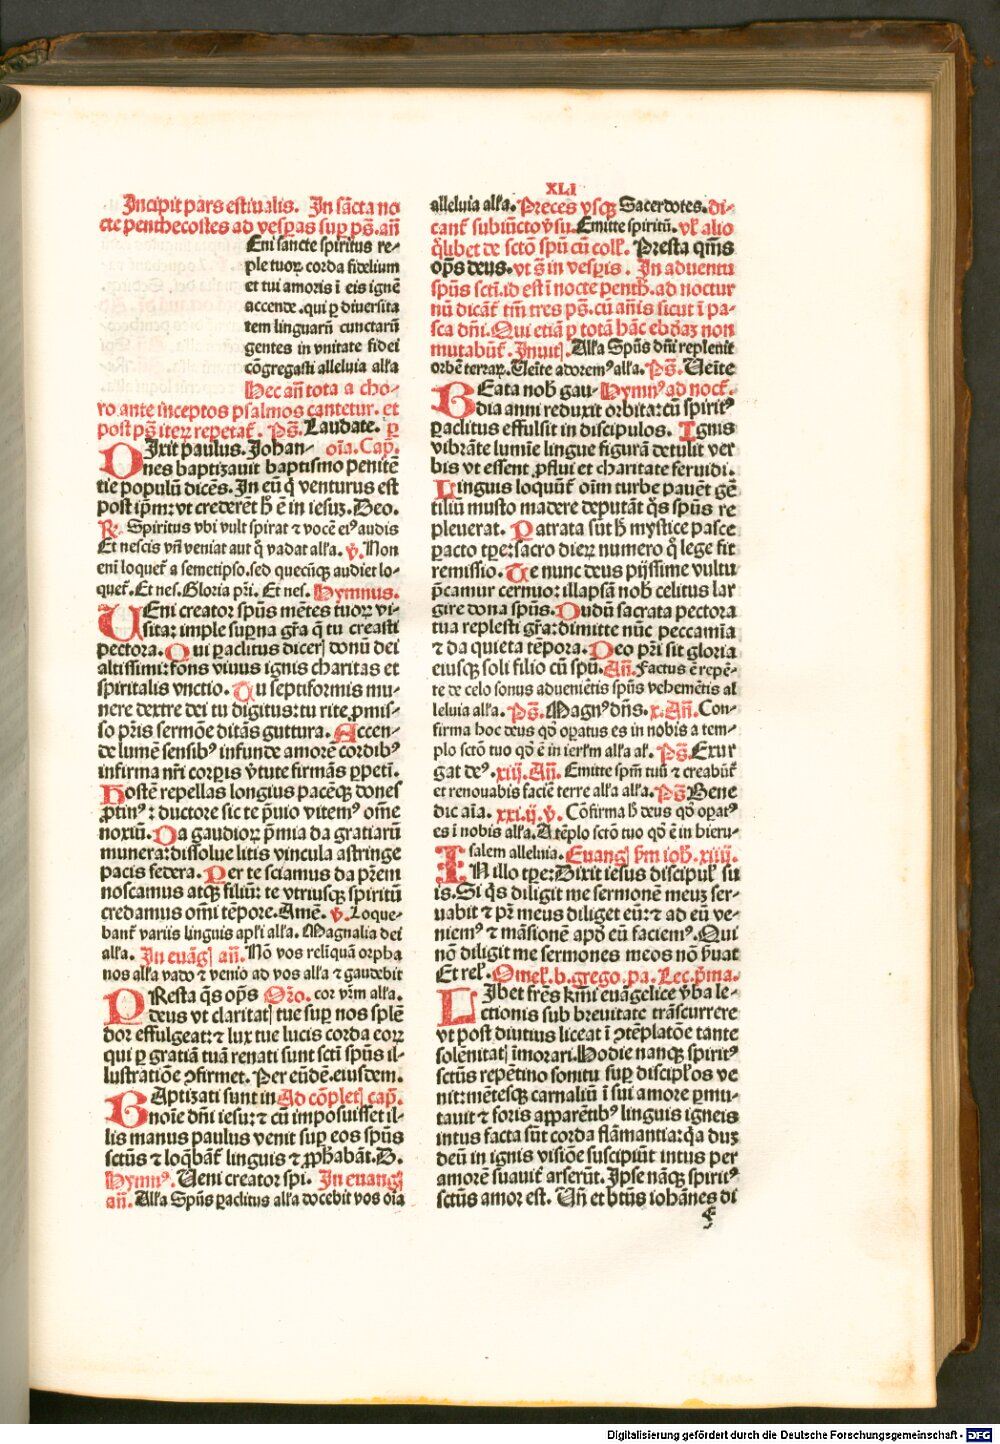 XLI
Incipit pars estiualis. In sācta no
cte penthecostes ad vesp̄as sup ps̄. añ
Eni sancte spiritus re-
ple tuoꝝ corda fidelium
et tui amoris ī eis ignē
accende. qui ꝑ diuersita
tem linguarū cunctarū
gentes in vnitate fidei
cōgregasti alleluia alľa
Hec añ tota a cho-
ro ante inceptos psalmos cantetur. et
post ps̄ iteꝝ repetat᷑. Ps̄. Laudate. ꝑ
Dixit paulus. Johan- oīa. Cap̄.
nes baptizauit baptismo penitē
tie populū dicēs. In eū q̄ venturus est
post ip̄m: vt crederēt h̄ ē in iesuꝫ. Deo.
R̃. Spiritus vbi vult spirat ⁊ vocē eiꝰ audis
Et nescis vñ veniat aut q̄ vadat alľa. v̄. Non
enī loquet᷑ a semetipso. sed quecūqꝫ audiet lo-
quet᷑. Et nes. Gloria pr̄i. Et nes. Hymnus.
Veni creator spūs mētes tuoꝝ vi-
sita: imple sup̄na gr̄a q̄ tu creasti
pectora. Qui paclitus diceri donū dei
altissimi: fons viuus ignis charitas et
spiritalis vnctio. Tu septiformis mu-
nere dextre dei tu digitus: tu rite ꝓmis-
so pr̄is sermōe ditās guttura. Accen-
de lumē sensibꝰ infunde amorē cordibꝰ
infirma nr̄i corꝑis v̄tute firmās ꝑpeti.
Hostē repellas longius pacēqꝫ dones
ꝓtinꝰ: ductore sic te p̄uio vitemꝰ om̄e
noxiū. Da gaudioꝝ p̄mia da gratiarū
munera: dissolue litis vincula astringe
pacis federa. Per te sciamus da pr̄em
noscamus atqꝫ filiū: te vtriusqꝫ spiritū
credamus om̄i tēpore. Amē. v̄. Loque-
bant᷑ variis linguis apľi alľa. Magnalia dei
alľa. In euāg̃ añ. Nō vos relīquā orpha
nos alľa vado ⁊ venio ad vos alľa ⁊ gaudebit
PResta q̄s op̄s Oro. cor vr̄m alľa.
deus vt claritatꝭ tue sup nos splē
dor effulgeat: ⁊ lux tue lucis corda eoꝝ
qui ꝑ gratiā tuā renati sunt scti spūs il-
lustratiōe ↄfirmet. Per eūdē. eiusdem.
BAptizati sunt in Ad cōpletꝭ cap̄.
noīe dñi iesu: ⁊ cū imposuisset il-
lis manus paulus venit sup eos spūs
sctūs ⁊ loq̄bāt᷑ linguis ⁊ ꝓphabāt. D.
Hymnꝰ. Veni creator spi. In euangꝭ
añ. Alľa Spūs paclitus alľa docebit vos oīa
alleluia alľa. Preces vsqꝫ Sacerdotes. di-
cant᷑ subiūcto v̄su. Emitte spiritū. vľ alio
q̄libet de sctō spū cū coll᷑. Presta qm̄s
op̄s deus. vt s̄ in vesꝑis. In aduentu
spūs scti. id est ī nocte penth̄. ad noctur
nū dicāt᷑ tm̄ tres ps̄. cū añis sicut ī pa-
sca dñi. Qui etiā ꝑ totā hāc ebdaꝫ non
mutabūt᷑. Inuitꝭ. Alľa Spūs dñi repleuit
orbē terraꝝ. Ueīte adoremꝰ alľa. Ps̄. Ueīte
BEata nob̄ gau- Hymnꝰ ad noct᷑.
dia anni reduxit orbita: cū spiritꝰ
paclitus effulsit in discipulos. Ignis
vibrāte lumīe lingue figurā detulit ver
bis vt essent ꝓflui et charitate feruidi.
Linguis loquūt᷑ oīm turbe pauēt gē
tiliū musto madere deputāt q̄s spūs re
pleuerat. Patrata sūt h̄ mystice pasce
ꝑacto tꝑe: sacro dieꝝ numero q̄ lege fit
remissio. Te nunc deus pijssime vultu
p̄camur cernuo: illapsā nob̄ celitus lar
gire dona spūs. Dudū sacrata pectora
tua replesti gr̄a: dimitte nūc peccamīa
⁊ da quieta tēpora. Deo pr̄i sit gloria
eiusqꝫ soli filio cū spū. Añ. Factus ē repē-
te de celo sonus aduenietis spūs vehemētis al
leluia alľa. Ps̄. Magnꝰ dñs. x. Añ. Con-
firma hoc deus qd̄ oꝑatus es in nobis a tem-
plo sctō tuo qd̄ ē in ierľm alľa aľ. Ps̄. Exur
gat deꝰ. xiij. Añ. Emitte spm̄ tuū ⁊ creabūt᷑
et renouabis faciē terre alľa alľa. Ps̄ Bene
dic aīa. xxi. ij. v̄. Cōfirma h̄ deus qd̄ oꝑatꝰ
es ī nobis alľa. A tēplo sctō tuo qd̄ ē in hieru-
salem alleluia. Euangꝭ s̄m ioh̄. xiiij.
IN illo tꝑe: Dixit iesus discipuľ su
is. Si q̄s diligit me sermonē meuꝫ ser-
uabit ⁊ pr̄ meus diliget eū: ⁊ ad eū ve-
niemꝰ ⁊ māsionē apd̄ eū faciemꝰ. Qui
nō diligit me sermones meos nō v̄uat
Et reľ. Omeľ. b. grego. pa. Lec. p̄ma.
LIbet fr̄es kīm̄i euāgelice v̄ba le-
ctionis sub breuitate trāscurrere
vt post diutius liceat ī ↄtēplatōe tante
solēnitatꝭ īmorari. Hodie nanqꝫ spiritꝰ
sctūs repētino sonitu suꝑ discipľos ve
nit: mētesqꝫ carnaliū ī sui amore ꝑmu-
tauit ⁊ foris apparētibꝰ linguis igneis
intus facta sūt corda flāmantia: q̄a duꝫ
deū in ignis visiōe suscipiūt intus per
amorē suauit᷑ arserūt. Ipse nāqꝫ spiritꝰ
sctūs amor est. Uñ et btūs iohānes di
f
Digitalisierung gefördert durch die Deutsche Forschungsgemeinschaft - DFG